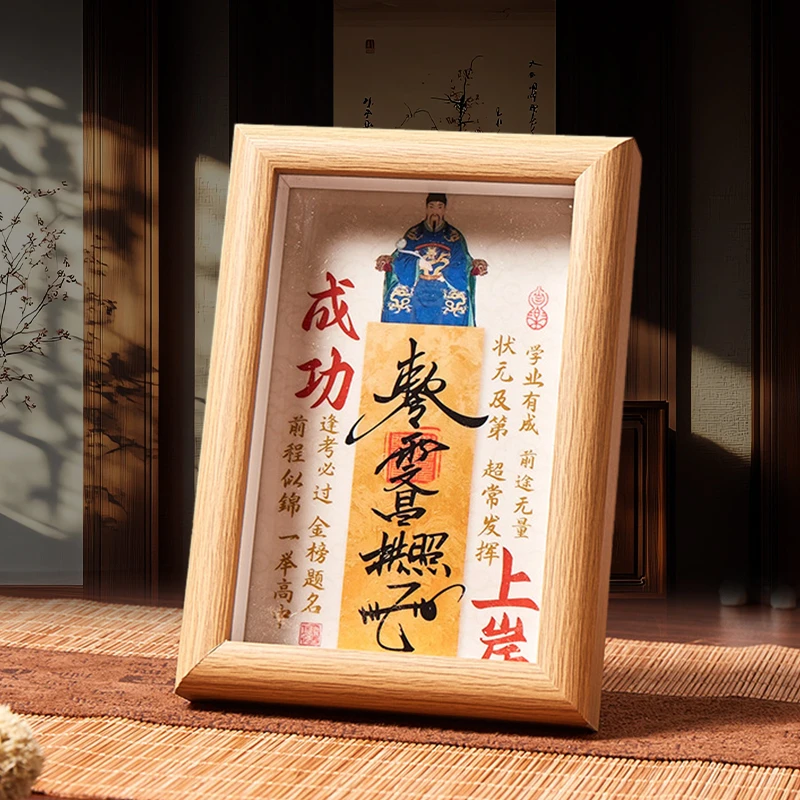 成功
逢考必过 金榜题名
前程似錦 一举高中
昌
拱照
学业有成 前途无量
状元及第 超常发挥
上岸